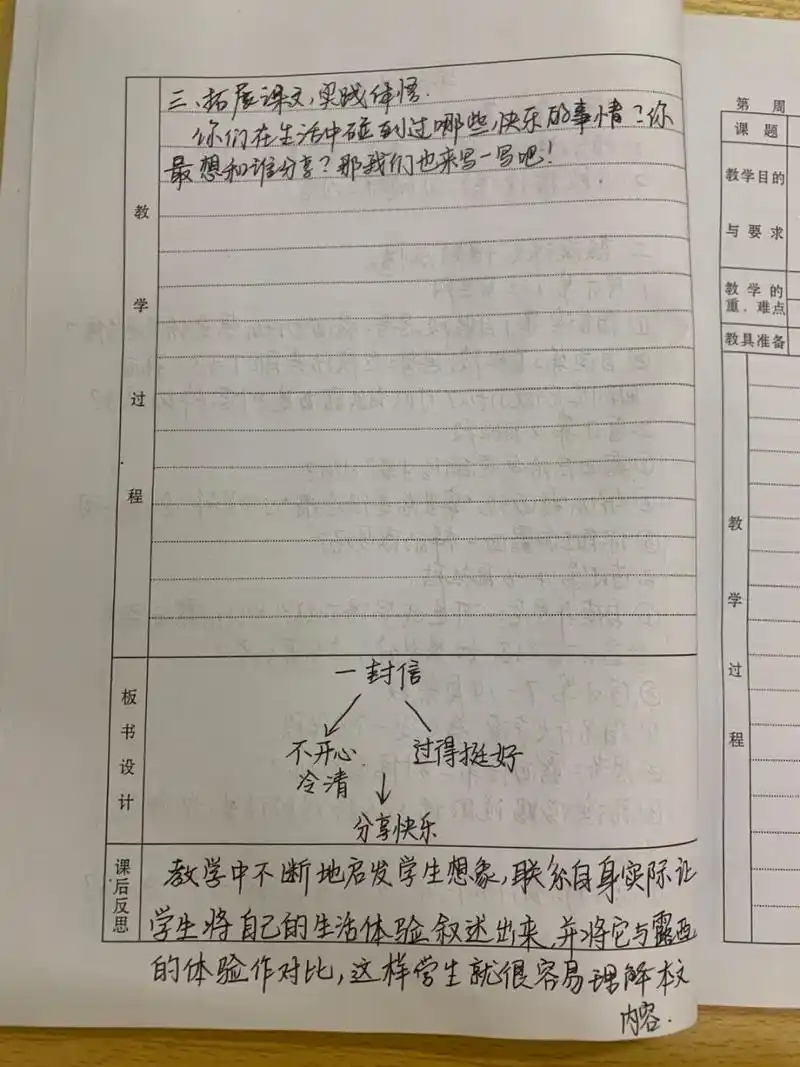 三、拓展课文,实践体悟.
你们在生活中碰到过哪些快乐的事情?你
最想和谁分享?那我们也来写一写吧!
教学过程
一封信
不开心 过得挺好
冷清
分享快乐
板书设计
教学中不断地启发学生想象,联系自身实际让
学生将自己的生活体验叙述出来,并将它与露西
的体验作对比,这样学生就很容易理解本文
内容.
课后反思
第 周
课题
教学目的
与要求
教学的
重、难点
教具准备
教学过程